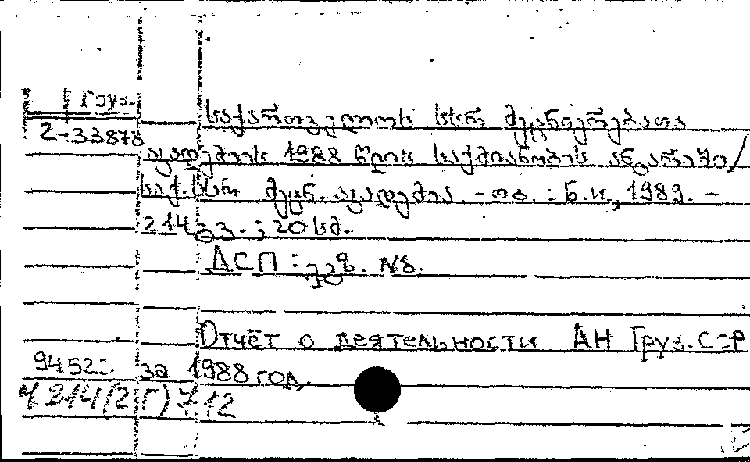 Груз.
2-33878
საქართველოს სსრ მეცნიერებათა
აკადემიის 1988 წლის საქმიანობის ანგარიში/
საქ. სსრ მეცნ. აკადემია. - თბ. : ნ.ი., 1989. -
214 გვ. ; 20 სმ.
ДСП : უფ. №8.
Отчёт о деятельности АН Груз.ССР
за 1988 год.
Ч 214(2Г)712